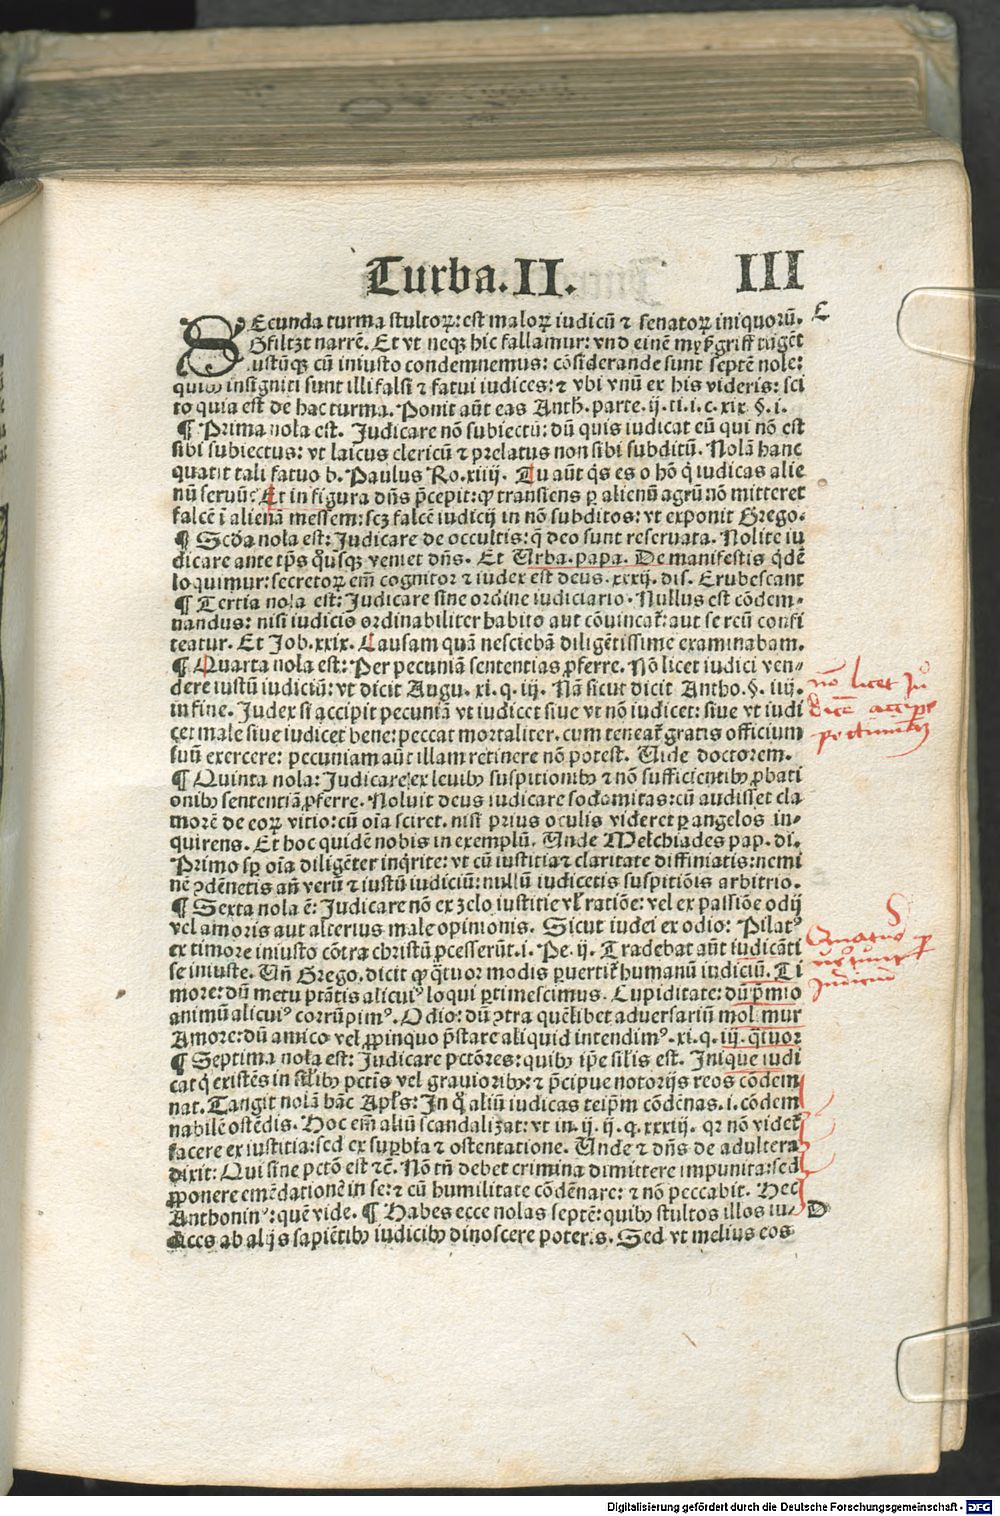 Turba.II. III
SEcunda turma stultoꝝ: est maloꝝ iudicū ⁊ senatoꝝ iniquorū. C
Gsiltzt narrē. Et vt neqꝫ hic fallamur: vnd einē mysßgriff tügēt
iustūqꝫ cū iniusto condemnemus: cōsiderande sunt septē nole:
quibꝰ insigniti sunt illi falsi ⁊ fatui iudices: ⁊ vbi vnū ex his videris: sci
to quia est de hac turma. Ponit aūt eas Anth. parte. ij. ti. i. c. xix §. i.
¶ Prima nola est. Judicare nō subiectū: dū quis iudicat eū qui nō est
sibi subiectus: vt laicus clericū ⁊ prelatus non sibi subditū. Nolā hanc
quatit tali fatuo b. Paulus Ro. xiiij. Tu aūt q̄s es o hō q̇ iudicas alie
nū seruū: Et in figura dn̄s p̄cepit: ꝙ transiens ꝑ alienū agrū: nō mitteret
falcē ī alienā messem: scꝫ falcē iudicij in nō subditos: vt exponit Grego.
¶ Scd̄a nola est: Judicare de occultis: q̄ deo sunt reseruata. Nolite iu
dicare ante tp̄s q̊usqꝫ veniet dn̄s. Et Urba. papa. De manifestis q̇dē
loquimur: secretoꝝ em̄ cognitor ⁊ iudex est deus. xxxij. dis. Erubescant
¶ Tertia nola est: Judicare sine ordine iudiciario. Nullus est cōdem-
nandus: nisi iudicio ordinabiliter habito aut cōuincat̄: aut se reū confi
teatur. Et Job. xxix. Causam quā nesciebā diligētissime examinabam.
¶ Quarta nola est: Per pecuniā sententias ꝓferre. Nō licet iudici ven-
dere iustū iudiciū: vt dicit Augu. xi. q. iij. Nā sicut dicit Antho. §. iiij.
in fine. Judex si accipit pecuniā vt iudicet siue vt nō iudicet: siue vt iudi
cet male siue iudicet bene: peccat mortaliter. cum teneat̄ gratis officium
suū exercere: pecuniam aūt illam retinere nō potest. Uide doctorem.
¶ Quinta nola: Judicare ex leuibꝰ suspitionibꝰ ⁊ nō sufficientibꝰ ꝓbati
onibꝰ sententiā ꝓferre. Noluit deus iudicare sodomitas: cū audisset cla
morē de eoꝝ vitio: cū oīa sciret. nisi prius oculis videret ꝑ angelos in-
quirens. Et hoc quidē nobis in exemplū. Unde Melchiades pap. di.
Primo sꝑ oīa diligēter inq̇rite: vt cū iusticia ⁊ claritate diffiniatis: nemi
nē ꝯdēnetis añ verū ⁊ iustū iudiciū: nullū iudicetis suspitiōis arbitrio.
¶ Sexta nola ē: Judicare nō ex zelo iustitie vl̄ ratiōe: vel ex passiōe odij
vel amoris aut alterius male opinionis. Sicut iudei ex odio: Pilatꝰ
ex timore iniusto cōtra christū ꝓcesserūt. i. Pe. ij. Tradebat aūt iudicāti
se iniuste. Uñ Grego. dicit ꝙ q̄tuor modis ꝑuertit̄ humanū iudiciū. Ti
more: dū metu ptātis alicuiꝰ loqui ꝑtimescimus. Cupiditate: dū p̄mio
animū alicuiꝰ corrūpimꝰ. Odio: dū ꝯtra quēlibet aduersariū mol mur
Amore: dū amico vel ꝓpinquo p̄stare aliquid intendimꝰ. xi. q. iij. q̄tuor
¶ Septima nola est: Judicare pctōres: quibꝰ ip̄e sil̄is est. Inique iudi
cat q̇ existēs in sil̄ibꝰ pctis vel grauioribꝰ: ⁊ p̄cipue notorijs reos cōdem
nat. Tangit nolā hāc Apl̄s: In q̊ aliū iudicas teip̄m cōdēnas. i. cōdem
nabilē ostēdis. Hoc em̄ aliū scandalizat: vt in. ij. ij. q. xxxiij. qꝛ nō videt̄
facere ex iustitia: sed ex suꝑbia ⁊ ostentatione. Unde ⁊ dn̄s de adultera
dixit: Qui sine pctō est ⁊c̄. Nō tn̄ debet crimina dimittere impunita: sed
ꝓponere emēdationē in se: ⁊ cū humilitate cōdēnare: ⁊ nō peccabit. Hec
Anthoninꝰ: quē vide. ¶ Habes ecce nolas septē: quibꝰ stultos illos iu- D
dices ab alijs sapiētibꝰ iudicibꝰ dinoscere poteris. Sed vt melius eos
nō licet Ju
dicē accipe
pecuniā
Quatuor
Judicium
Digitalisierung gefördert durch die Deutsche Forschungsgemeinschaft - DFG